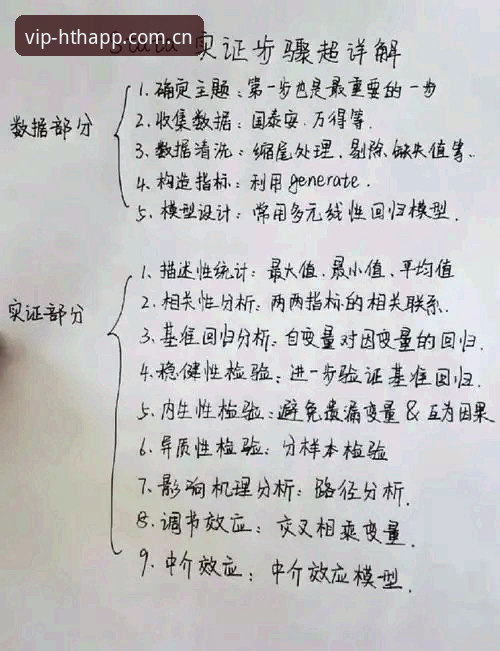 vip-hthapp.com.cn
Stata 实证步骤超详解
数据部分
1. 确定主题：第一步也是最重要的一步
2. 收集数据：国泰安、万得等.
3. 数据清洗：缩尾处理、剔除缺失值等.
4. 构造指标：利用generate.
5. 模型设计：常用多元线性回归模型.
实证部分
1. 描述性统计：最大值、最小值、平均值
2. 相关性分析：两两指标的相关联系.
3. 基准回归分析：自变量对因变量的回归.
4. 稳健性检验：进一步验证基准回归.
5. 内生性检验：避免遗漏变量 & 互为因果
6. 异质性检验：分样本检验
7. 影响机理分析：路径分析.
8. 调节效应：交叉相乘变量.
9. 中介效应：中介效应模型.